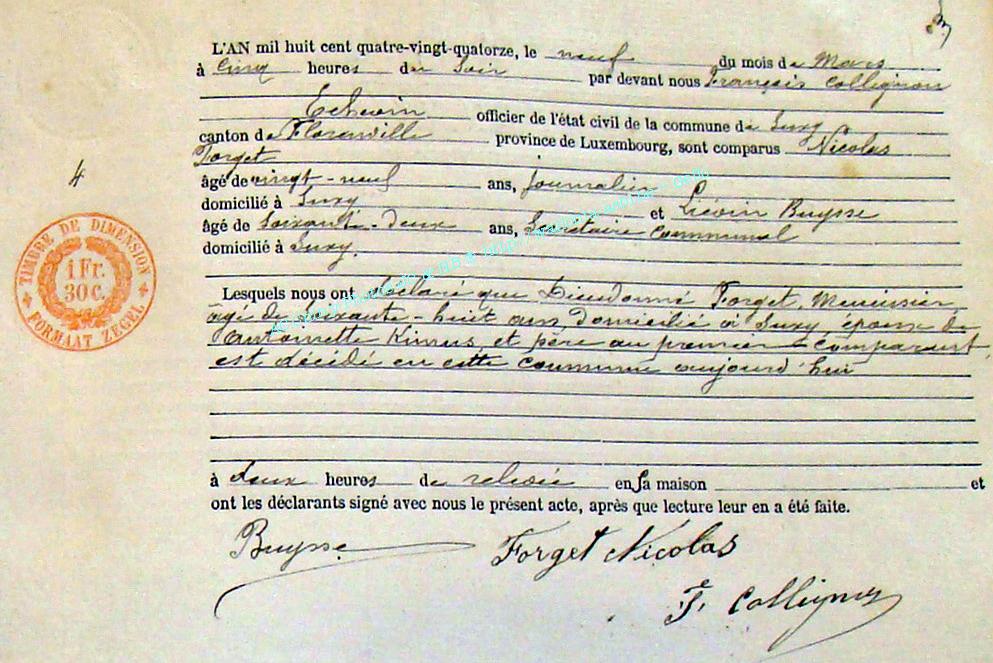 L'AN mil huit cent quatre-vingt-quatorze, le neuf du mois de Mars
à Cinq heures du Soir par devant nous François Collignon
Echevin officier de l'état civil de la commune de Suxy
canton de Florenville province de Luxembourg, sont comparus Nicolas
Forget
âgé de vingt-neuf ans, journalier
domicilié à Suxy et Liévin Buysse
âgé de Soixante-deux ans, Secrétaire communal
domicilié à Suxy.
4
TIMBRE DE DIMENSION
1 Fr.
30 C.
FORMAAT ZEGEL
Lesquels nous ont déclaré que Dieudonné Forget, Menuisier,
âgé de soixante-huit ans, domicilié à Suxy, époux de
Antoinette Kinus, et père au premier comparant,
est décédé en cette commune aujourd'hui
à deux heures de relevée en sa maison et
ont les déclarants signé avec nous le présent acte, après que lecture leur en a été faite.
Buysse Forget Nicolas
F. Collignon